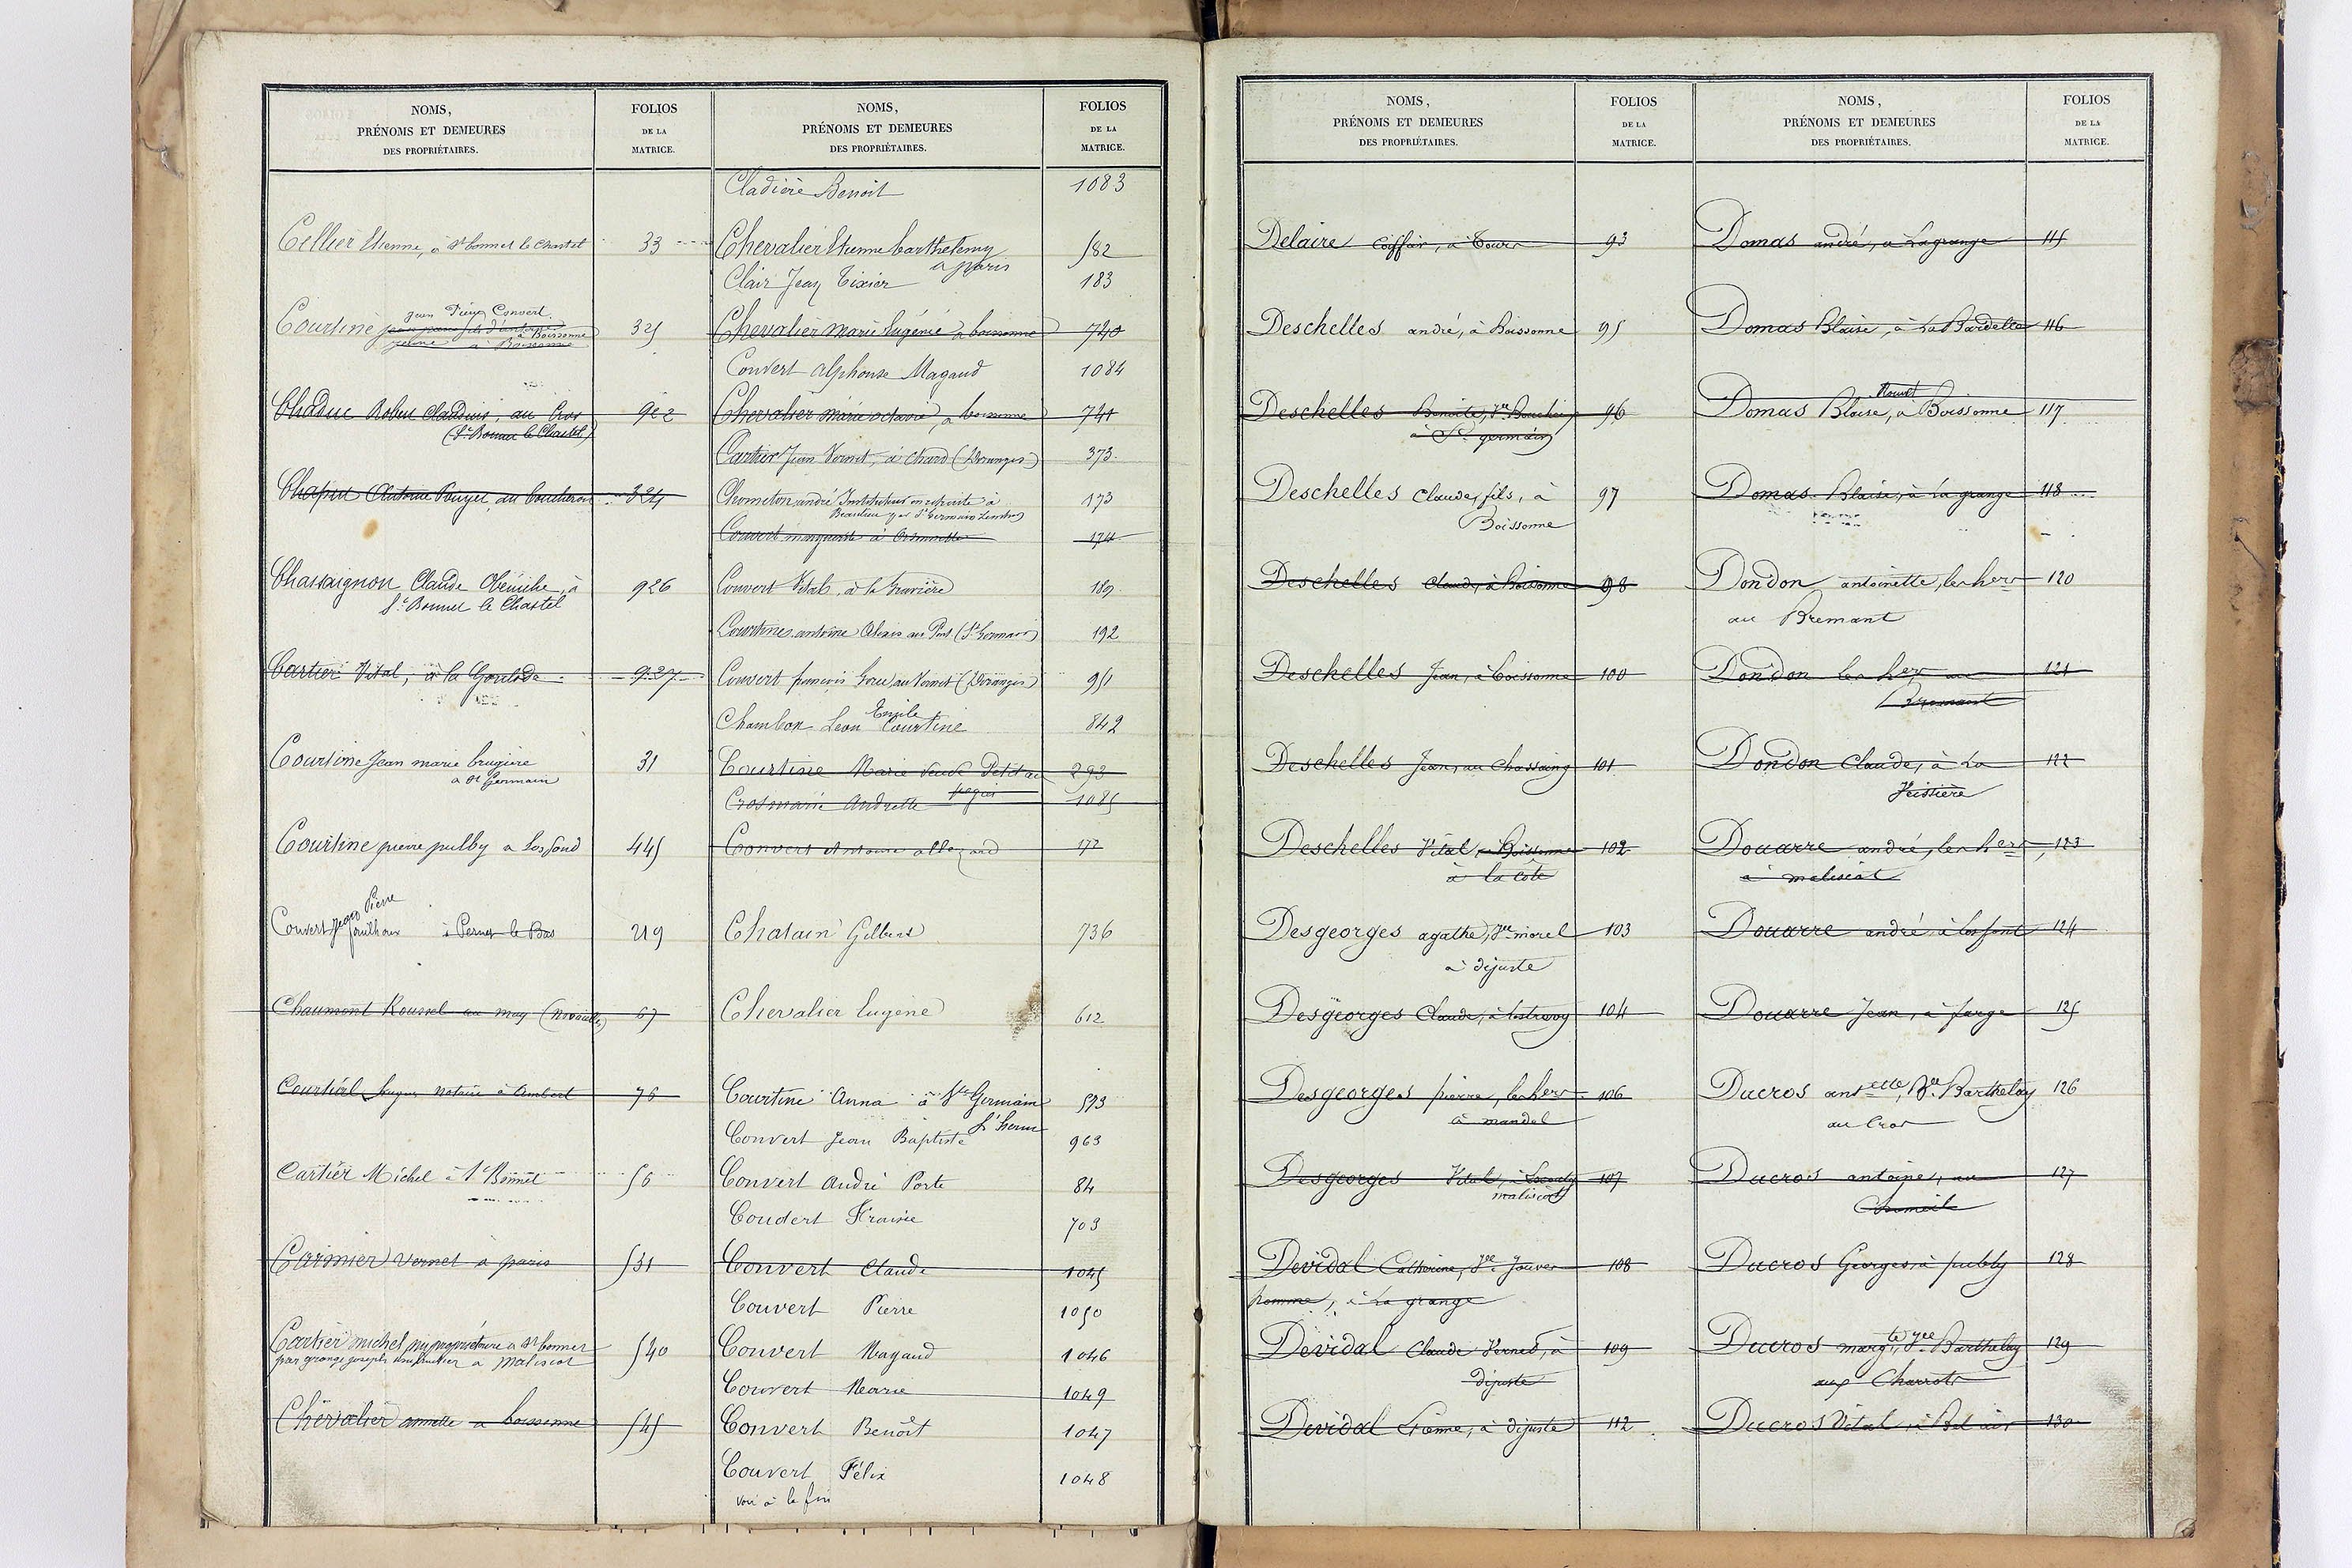 NOMS,
PRÉNOMS ET DEMEURES
DES PROPRIÉTAIRES.
FOLIOS
DE LA
MATRICE.
Cellier Etienne, à St bonnet le Chastel 33
Courtine jean Vieux Convert
à Boissonne
jeune à Boissonne 325
Chaduc Roben Claudius, au Cros 922
(St Bonnet le Chastel)
Chaput Antoine Pouyet, au boucheron 324
Chassaignon Claude, à 926
St Bonnet le Chastel
Cartier Vital, à la Goulède 927
Courtine Jean marie brugière 31
a St Germain
Courtine pierre pulby a Losfond 445
Convert Jean Pierre
à Pernet le Bas 219
Chaumont Roussel au may 67
Courtial notaire à Ambert 76
Cartier Michel à St Bonnet 56
Carmier Vernet à paris 531
Cartier michel nu propriétaire a St bonnet
par grange joseph usufruitier a Maliscot 540
Chevalier annette a boissonne 545
NOMS,
PRÉNOMS ET DEMEURES
DES PROPRIÉTAIRES.
FOLIOS
DE LA
MATRICE.
Cladière Benoit 1083
Chevalier Etienne barthelemy 582
a paris
Clair Jean Tixier 183
Chevalier marie Eugénie a boissonne 740
Convert alphonse Magaud 1084
Chevalier marie octavie, a boissonne 741
Cartier Jean Vernet, à chard (Doranges) 373
Chometon andré Instituteur en retraite à 173
Beaulieu par St Germain Lembron
Convert marguerite à 174
Convert Vital, à la Gravière 189
Courtine antoine Alexis au Pont (St Germain) 192
Convert françois Gorce au Vernet (Doranges) 951
Emile
Chambon Leon Courtine 842
Courtine Marie Veuve Petit au 293
Crosmarie Andrette 1085
Convert Antoine 172
Chatain Gilbert 736
Chevalier Eugène 612
Courtine Anna à St Germain 593
l'herm
Convert Jean Baptiste 963
Convert André Porte 84
Coudert Fraisie 703
Convert Claude 1045
Convert Pierre 1050
Convert Magaud 1046
Convert Marie 1049
Convert Benoît 1047
Convert Félix 1048
voir à la fin
NOMS,
PRÉNOMS ET DEMEURES
DES PROPRIÉTAIRES.
FOLIOS
DE LA
MATRICE.
Delaire Coiffier, à Tours 93
Deschelles andré, à Boissonne 95
Deschelles Benoite, Vve 96
à St germain
Deschelles Claude, fils, à 97
Boissonne
Deschelles Claude, à Boissonne 98
Deschelles Jean, à Boissonne 100
Deschelles Jean, au Chassaing 101
Deschelles Vital, à Boissonne 102
à la côte
Desgeorges agathe, Vve morel 103
à dijuste
Desgeorges Claude, à 104
Desgeorges pierre, les hers 106
à mandel
Desgeorges Vital, à 107
maliscot
Devidal Catherine, Vve Jouve 108
pomme, à La grange
Devidal Claude Vernet, à 109
dijuste
Devidal Etienne, à dijuste 112
NOMS,
PRÉNOMS ET DEMEURES
DES PROPRIÉTAIRES.
FOLIOS
DE LA
MATRICE.
Domas andré, à Lagrange 115
Domas Blaise, à La Bardette 116
Domas Blaise, à Boissonne 117
Domas Blaise, à La grange 118
Dondon antoinette, les hers 120
au Bremant
Dondon les hers au 121
Bremant
Dondon Claude, à La 122
Veissière
Douarre andré, les hers 123
à maliscot
Douarre andré à losfont 124
Douarre Jean, à farge 125
Ducros antelle, Vve Barthelay 126
au Cros
Ducros antoine, au 127
Ducros Georges à pulby 128
Ducros margte, Vve Barthelay 129
aux Charrots
Ducros Vital, à Bel air 130